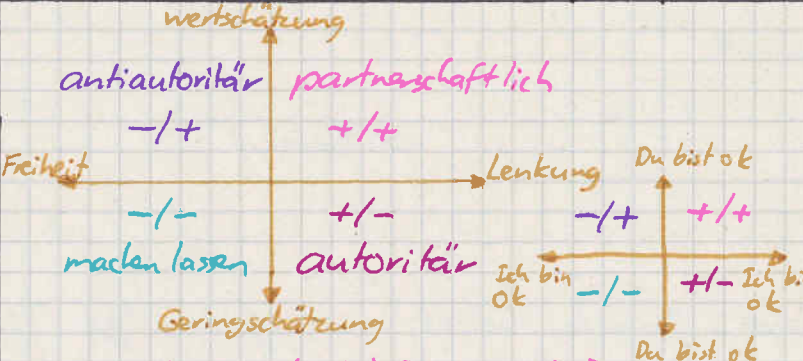 wertschätzung
antiautoritär partnerschaftlich
-/+ +/+
Freiheit Lenkung
-/- +/-
machen lassen autoritär
Geringschätzung
Du bist ok
-/+ +/+
Ich bin ok Ich bi
-/- +/-
Du bist ok